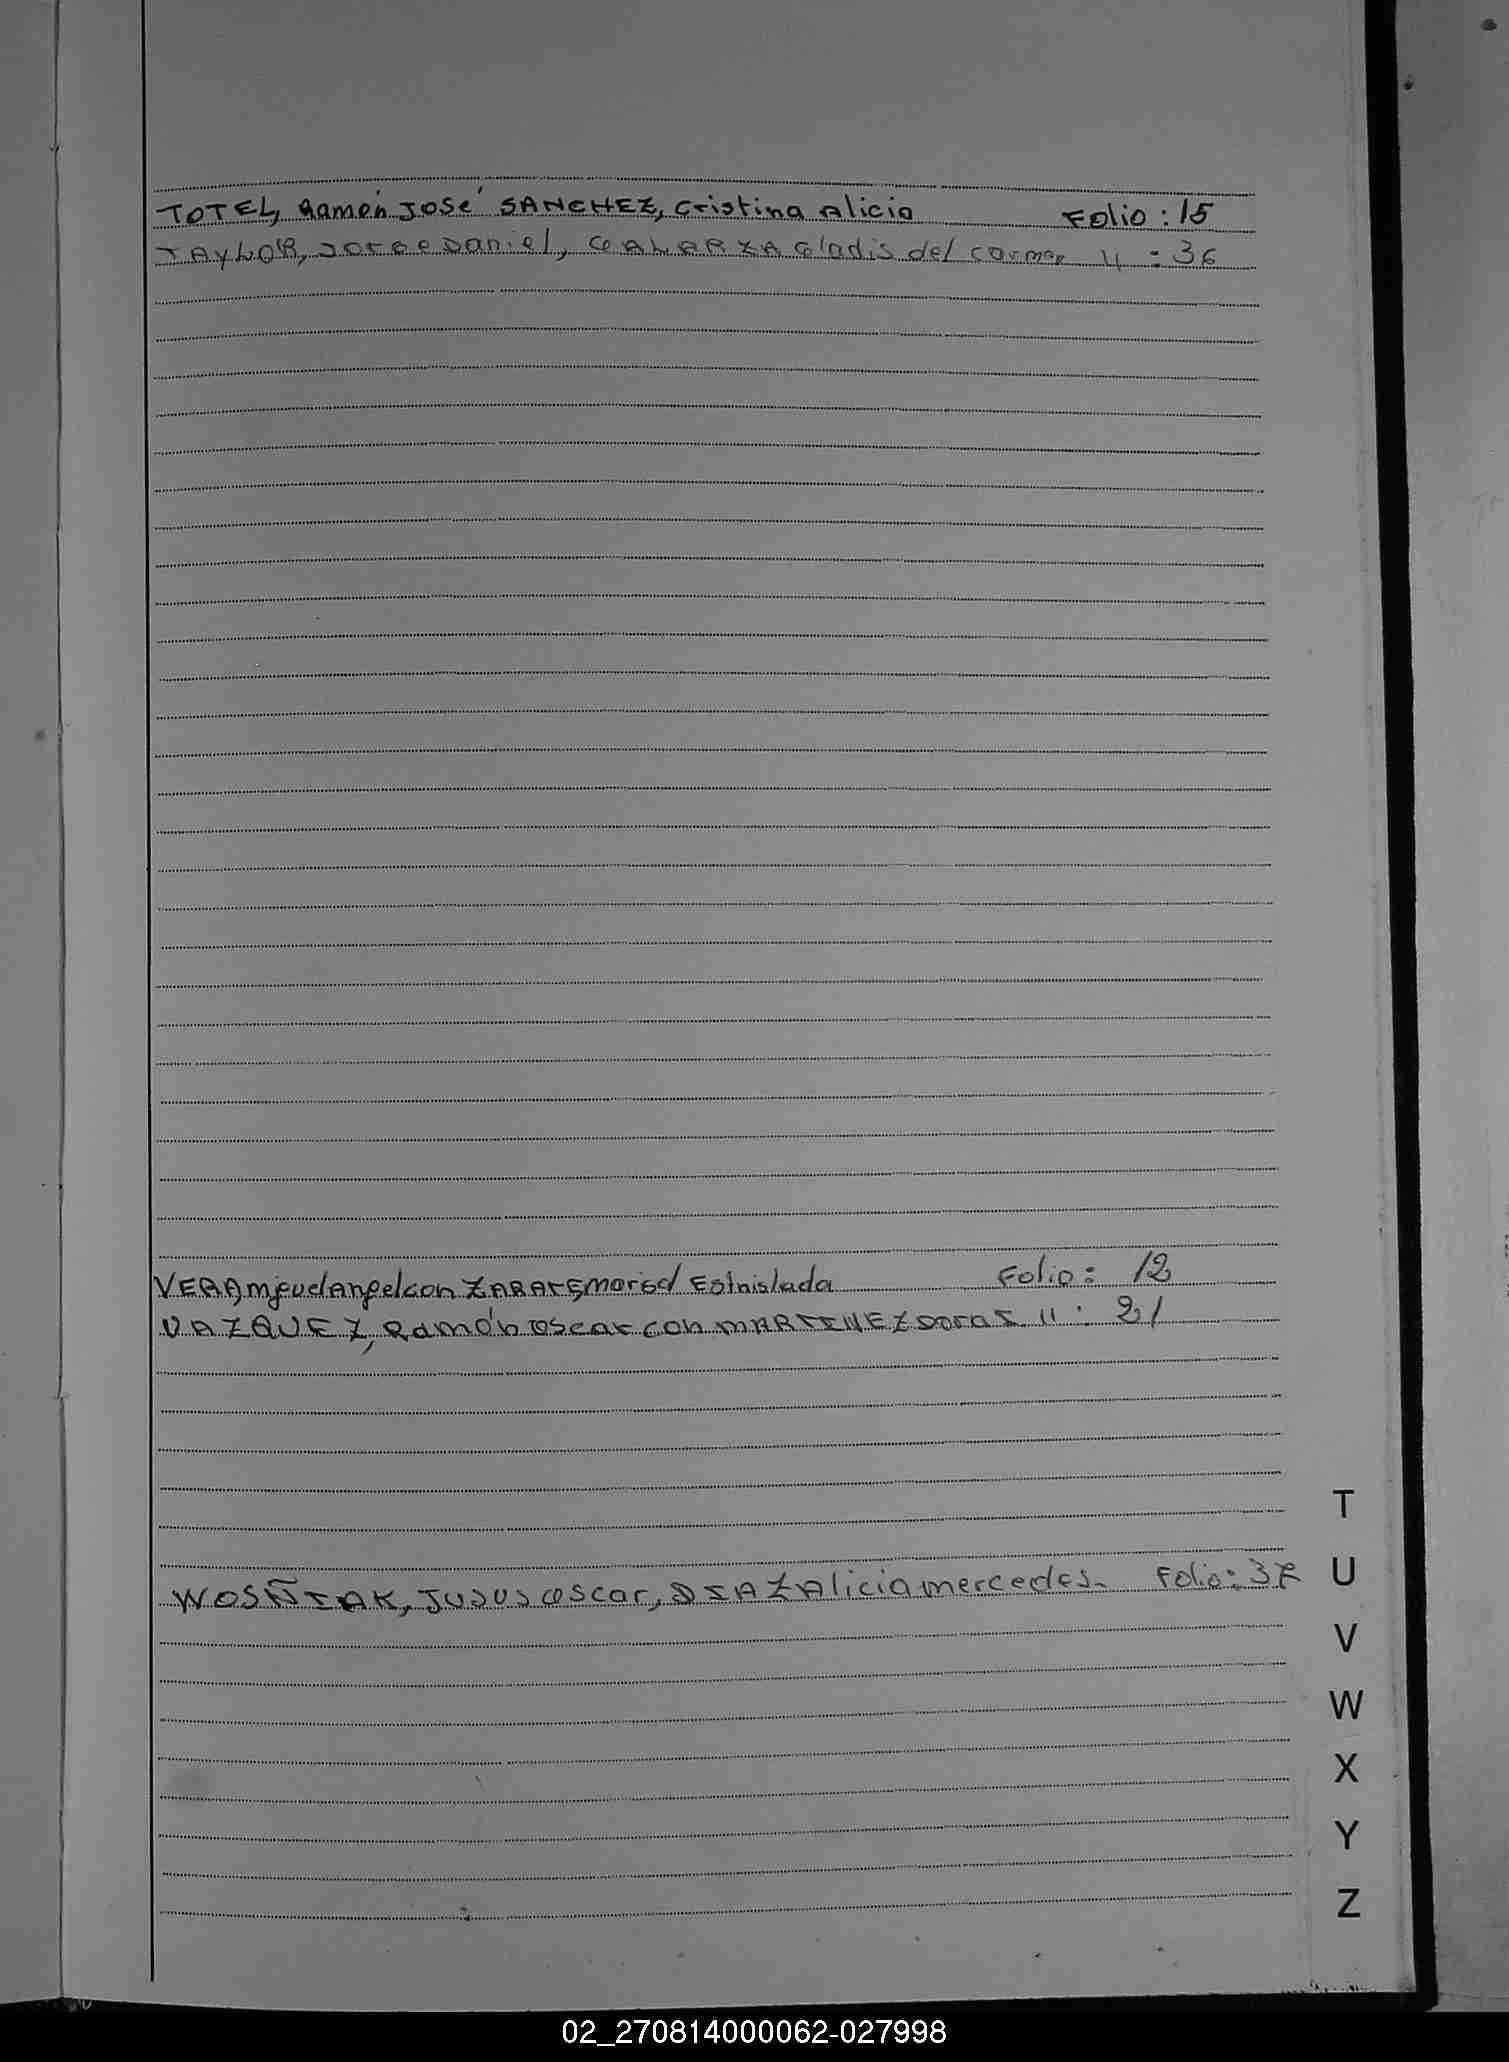 TOTEL, Ramón José SANCHEZ, Cristina Alicia Folio : 15
TAYLOR, Jorge Daniel, GALARZA Gladis del Carmen " : 36
VERA, Miguel Angel con ZARATE, Estnislada Folio : 12
VAZQUEZ, Ramón Oscar con MARTINEZ Dora I. " : 21
WOSÑIAK, Jusus Oscar, DIAZ Alicia Mercedes. Folio : 37
T
U
V
W
X
Y
Z
02_270814000062-027998